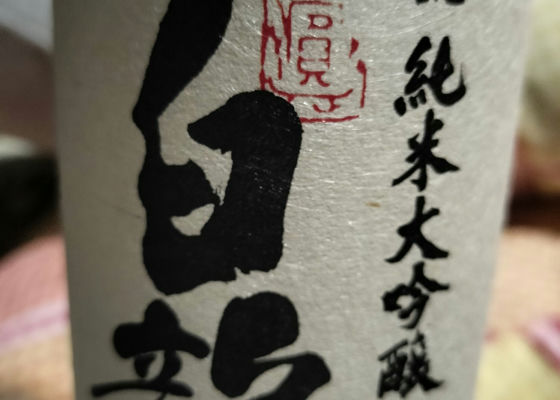 純米大吟醸
白龍